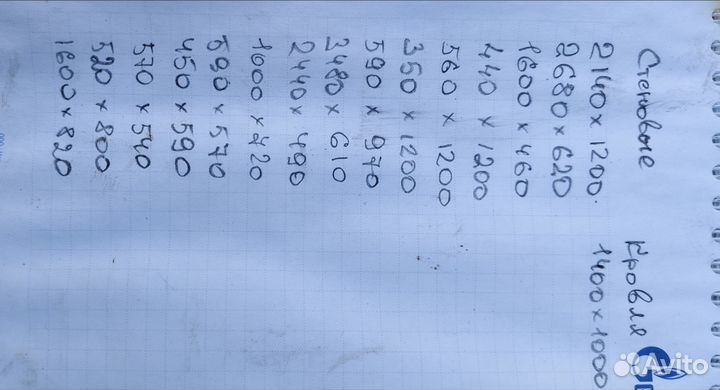 Стеновые
2140 x 1200.
2680 x 620
1600 x 460
440 x 1200
560 x 1200
350 x 1200
590 x 970
3480 x 610
2440 x 490
1600 x 420
590 x 570
450 x 590
570 x 540
520 x 800
1600 x 820
Кровля
1400 x 1000
Avito